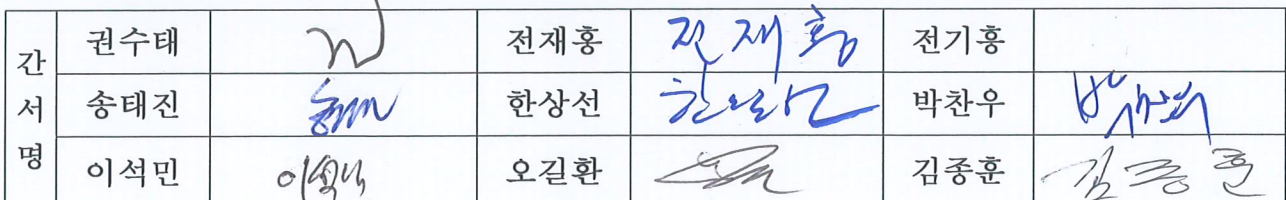 간서명
권수태 전재홍 전재홍 전기흥
송태진 한상선 한상선 박찬우
이석민 이석민 오길환 김종훈 김종훈